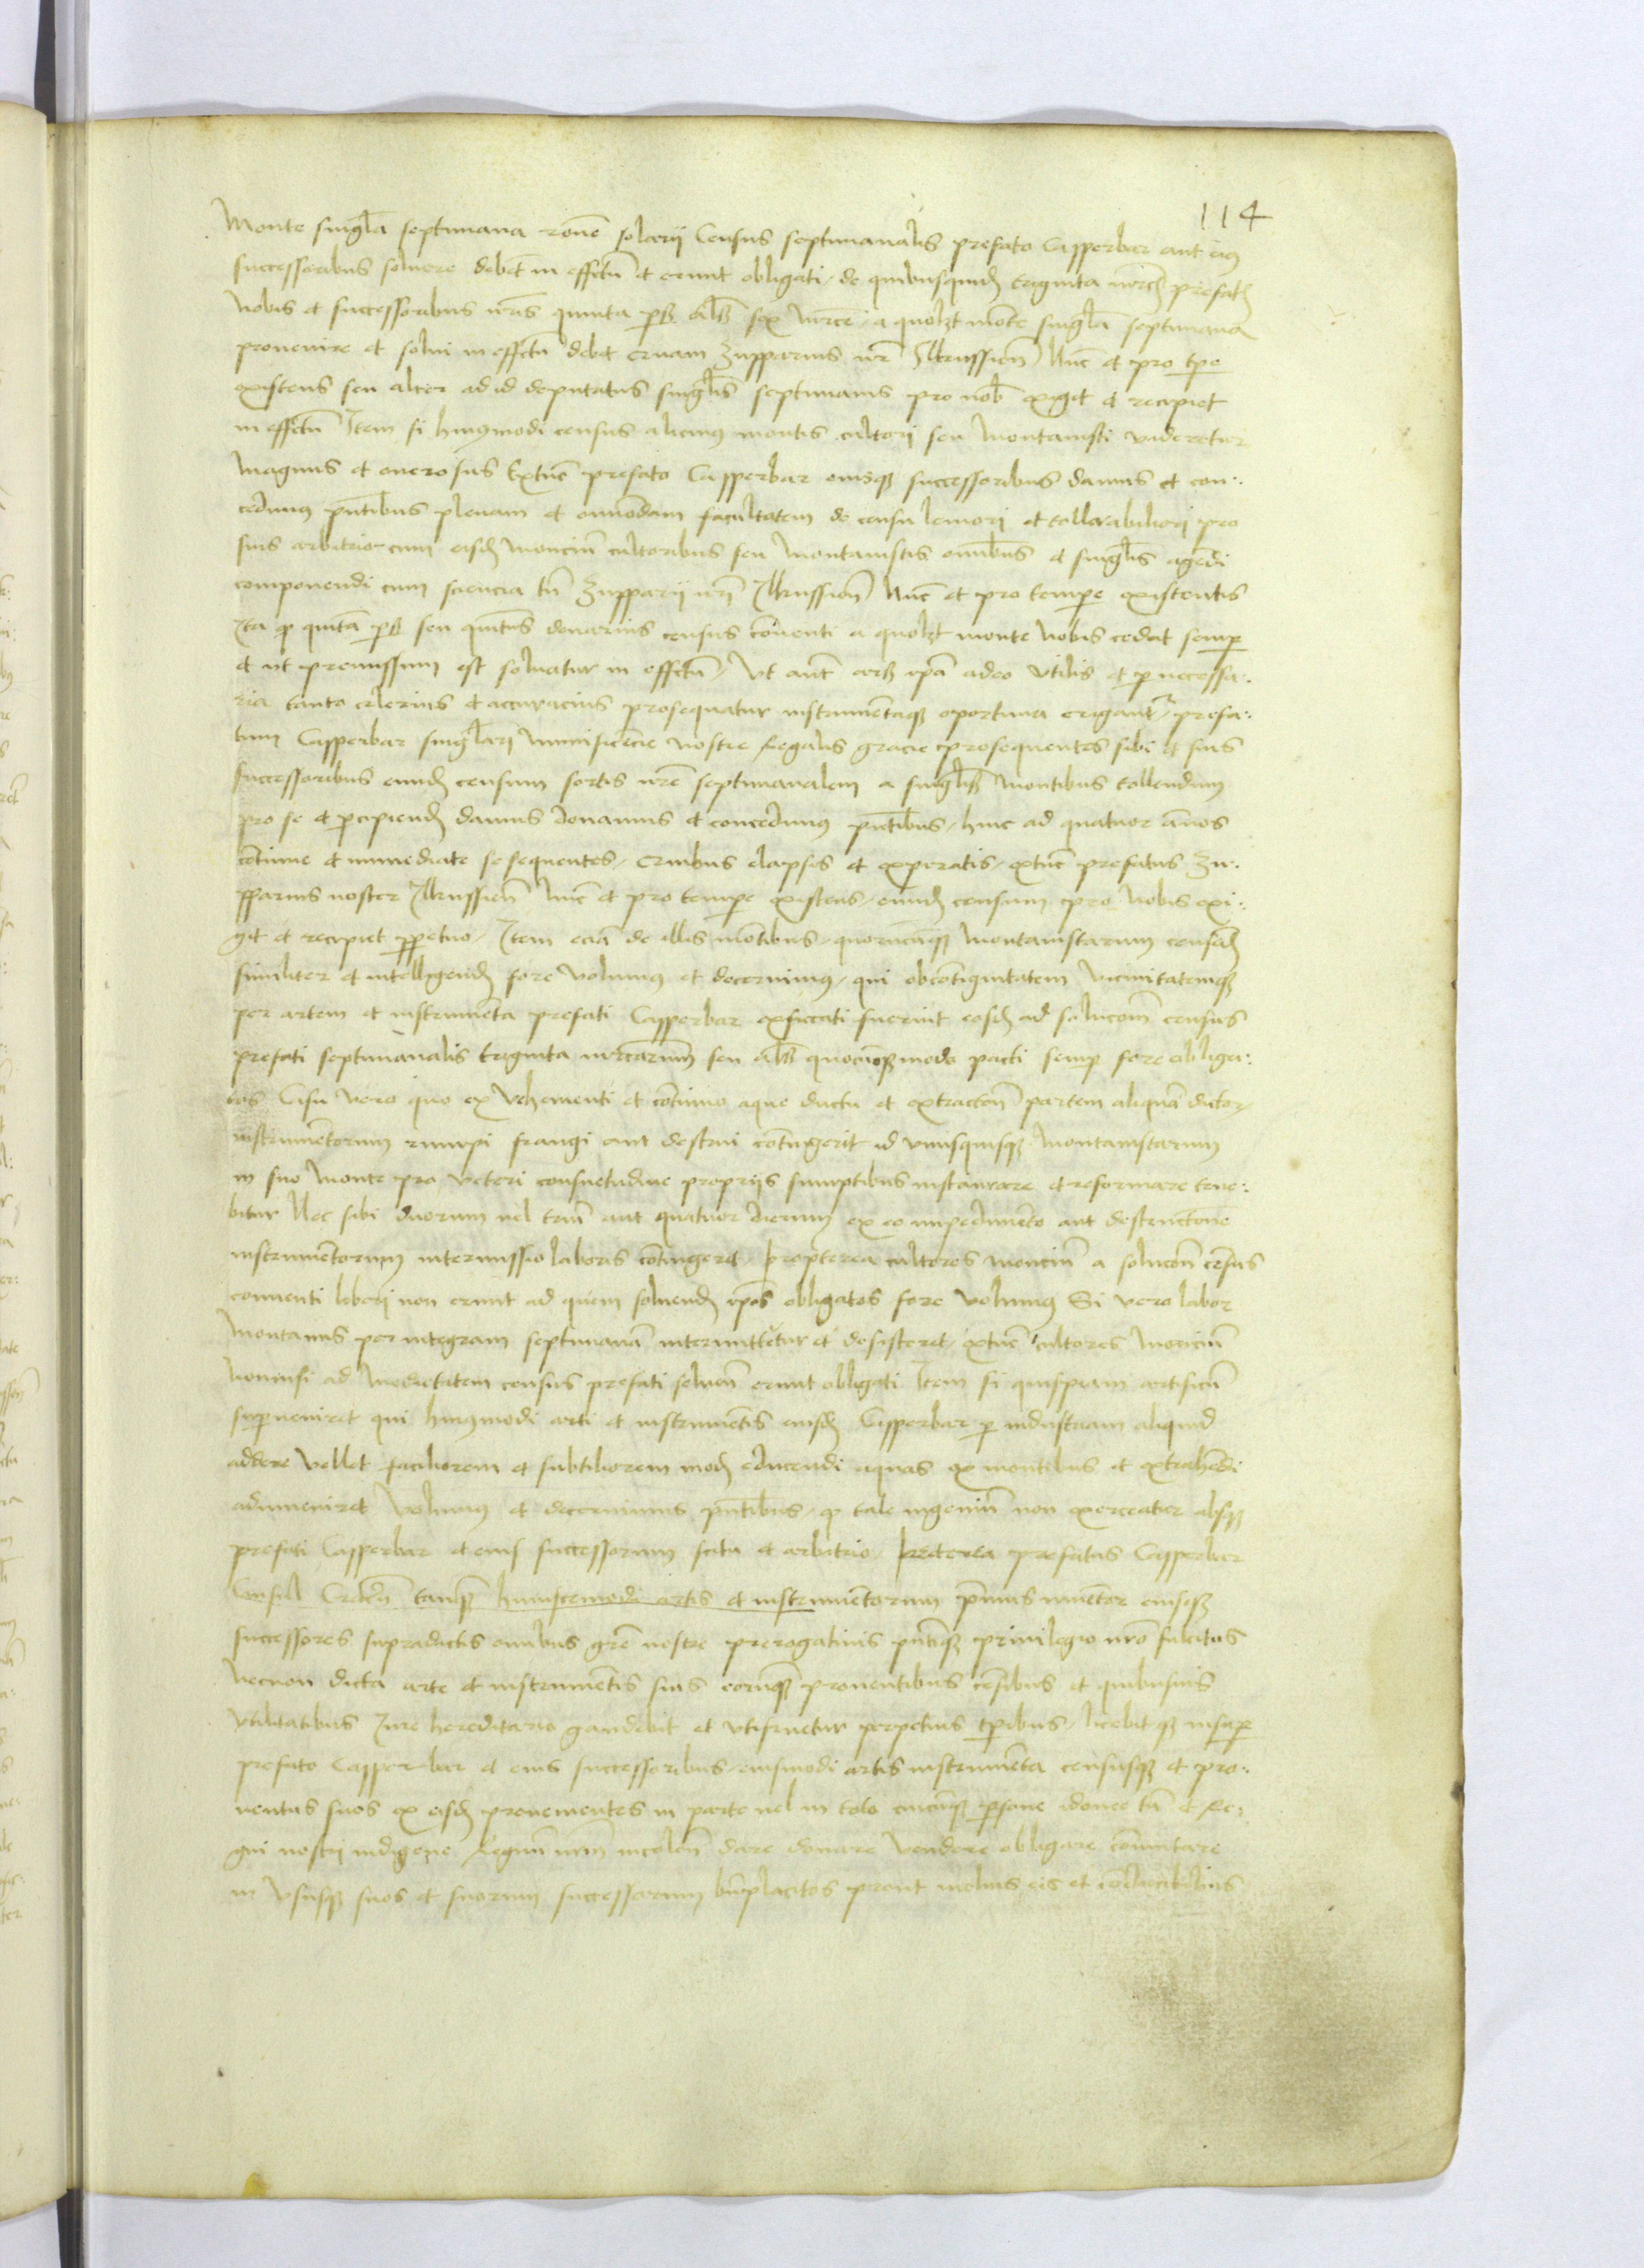 114
Monte singl̄a septimana ronē solarij Census septimanalis prefato Casperbar aut eiꝰ
successoribus soluere debēt in effectū et erunt obligati, de quibusquidē triginta mrcis prefatis
Nobis et successoribus nr̄is quinta pars als̄ sex mrce, a quolꝫt monte singl̄a septimana
prouenire et solui in effectū debet eciam Zupparius nr̄ Ilkussien̄ Nūc et pro tpe
existens seu alter ad id deputatus singl̄is septimanis pro nob̄ exiget et recipiet
in effectū Item si huiꝰmodi census alicuiꝰ montis cultori seu Montanisti videretur
Magnus et onerosus Extūc prefato Casperbar eiusqꝫ successoribus damus et con:
cedimꝰ pn̄tibus plenam et omnōdam facultatem de censu leuiori et tollerabiliori pro
suis arbitrio cum eisdē Monciū cultoribus seu Montanistis omībus et singl̄is agēdi
componendi cum sciencia tn̄ Zupparij nr̄i Ilkussien̄ Nūc et pro tempe existentis
Ita qꝫ quīta pars seu quītus denarius census cōuenti a quolꝫt monte Nobis cedat semp
et vt premissum est soluatur in effectū, Vt aut̄ ars ipā adeo vtilis et pernecessa:
ria tanto celerius et accuracius prosequatur instrumētaqꝫ oportuna erigant̄, prefa:
tum Casperbar singl̄ari munificēcie nostre Regalis gracie prosequentes sibi et suis
successoribus eundē censum sortis nr̄e septimanalem a singl̄is Montibus tollendum
pro se et percipiendū damus donamus et concedimꝰ pn̄tibus, hinc ad quatuor ānos
cōtinue et immediate se sequentes, Quibus elapsis et experatis, extūc prefatus Zu:
pparius noster Ilkussien̄ Nūc et pro tempe existens, eundē censum pro Nobis exi:
get et recipiet perpetuo, Item eciā de illis mōtibus, quorūcūqꝫ Montanistarum censēdū
similiter et intelligendū fore Volumꝰ et decernimꝰ, qui obcōtiguitatem Vicinitatemqꝫ
per artem et instrumēta prefati Casperbar exsiccati fuerint eosdē ad solucionē census
prefati septimanalis triginta mrcarum seu als̄ quocūqꝫmodo pacti semp fore obliga:
tos Casu vero quo ex Vehementi et cōtinuo aque ductu et extractioē partem aliquā dictor
instrumētorum rumpi frangi aut destrui cōtigerit id vnusquisqꝫ Montanistarum
in suo Monte pro veteri consuetudine proprijs sumptibus instaurare et reformare tene:
bitur Nec sibi duorum uel triū aut quatuor dierum ex eo impedimēto aut destructione
instrumentorum intermissio laboris cōtingeret, propterea cultores monciū a solucōne cēsus
conuenti liberi non erunt ad quem soluendū ipos obligatos fore volumꝰ Si vero labor
Montanus per integram septimanā intermitteretur et desisteret, extūc cultores monciū
nonnisi ad Medietatem census prefati soluen̄ erunt obligati Item si quispiam artificū
superueniret qui huiꝰmodi arti et instrumētis eiusdē Casperbar per industriam aliquid
addere vellet faciliorem et subtiliorem modū educendi aquas ex montibus et extrahēdi
adinueniret Volumꝰ et decernimus pn̄tibus, qꝫ tale ingeniū non exerceatur absqꝫ
prefati Casperbar et eius successorum scitu et arbitrio, preterea prefatus Casperbar
tanqꝫ huiuscemodi artis et instrumētorum primus inuētor eiusqꝫ
successores supradictis omībus gr̄e nostre prerogatiuis pn̄tiqꝫ priuilegio nr̄o fulcitus
Necnon dicta arte et instrumētis suis eorūqꝫ prouentibus cēsibus et quibusuis
Vtilitatibus Iure hereditario gaudebit et vtifruetur perpetuis tp̄ibus, licebitqꝫ insuper
prefato Casperbar et eius successoribus, eiusmodi artis instrumēta censusqꝫ et pro:
uentus suos ex eisdē prouenientes in parte uel in toto cuicūqꝫ persone idonee tn̄ et Re:
gni nostri indigene Regnū nr̄m incolen̄ dare donare Vendere obligare cōmutare
in Vsusqꝫ suos et suorum successorum bn̄placitos prout melius eis et cōducibilius